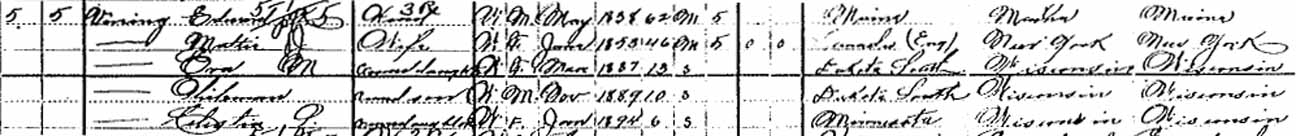 5 5 Vining Edward Head W M May 1838 62 M 5 Maine Maine Maine
— Matie J Wife W F June 1853 46 M 5 0 0 Canada (Eng) New York New York
— Ora M W F Mar 1887 13 S Dakota South Wisconsin Wisconsin
— W M Nov 1889 10 S Dakota South Wisconsin Wisconsin
— W F Jan 1894 6 S Minnesota Wisconsin Wisconsin